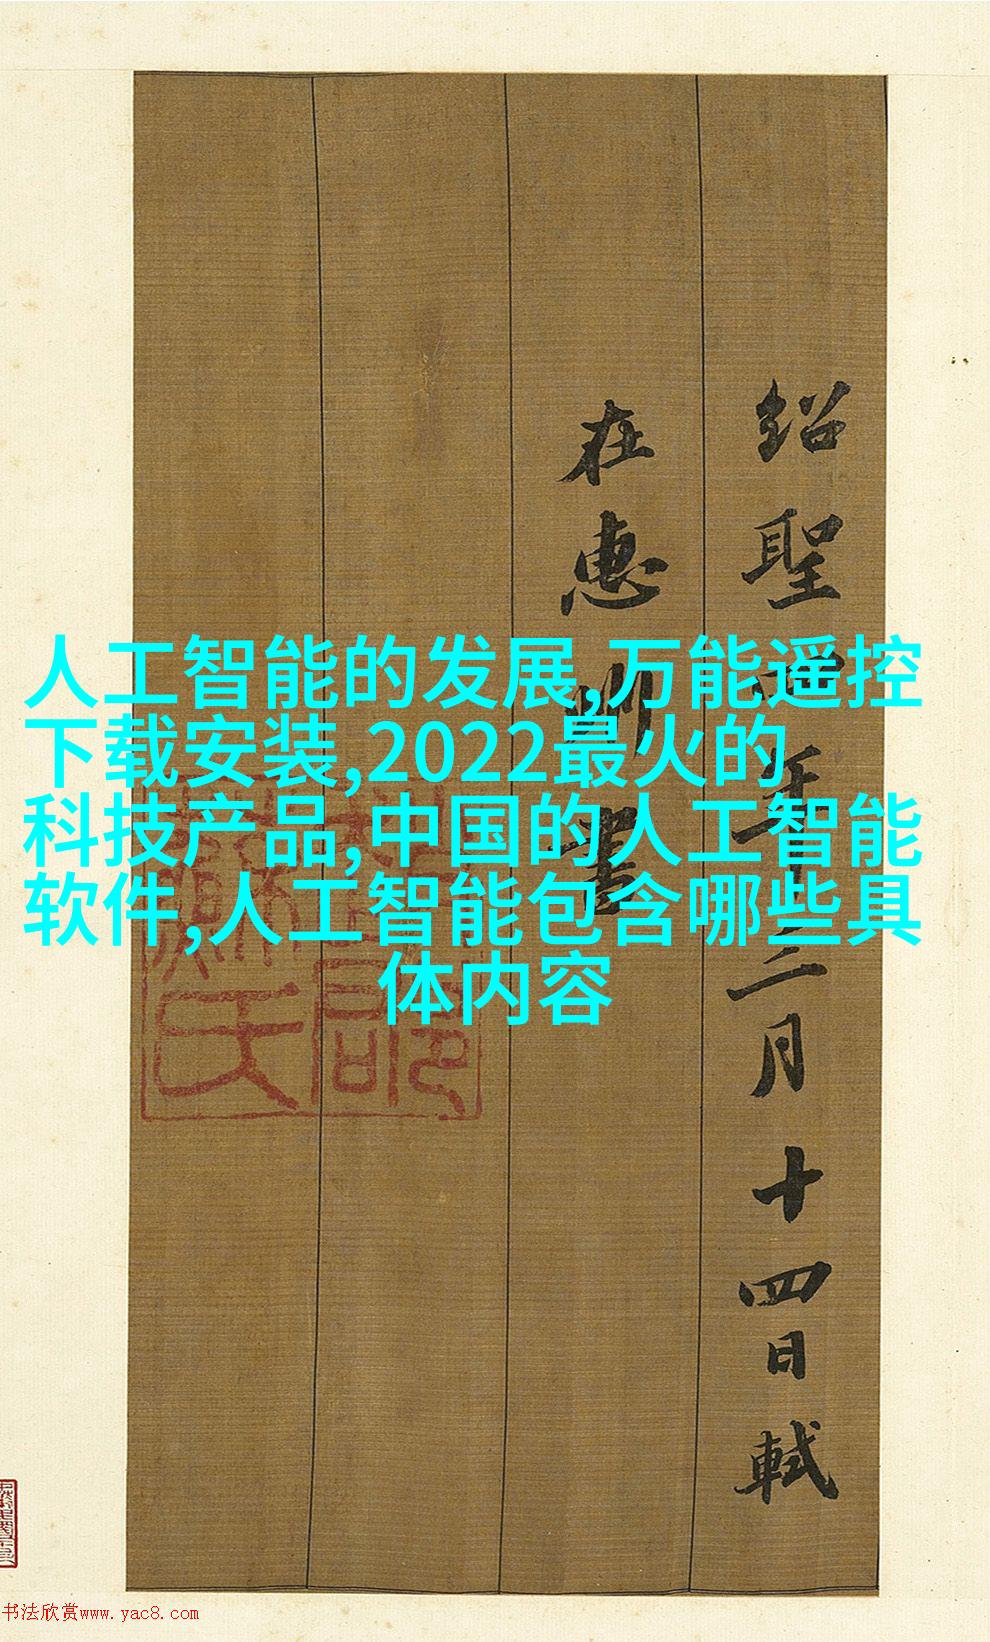 人工智能的发展,万能遥控
下载安装,2022最火的
科技产品,中国的人工智能
软件,人工智能包含哪些具
体内容
紹聖四年三月十四日軾
在惠州書
书法欣赏www.yac8.com